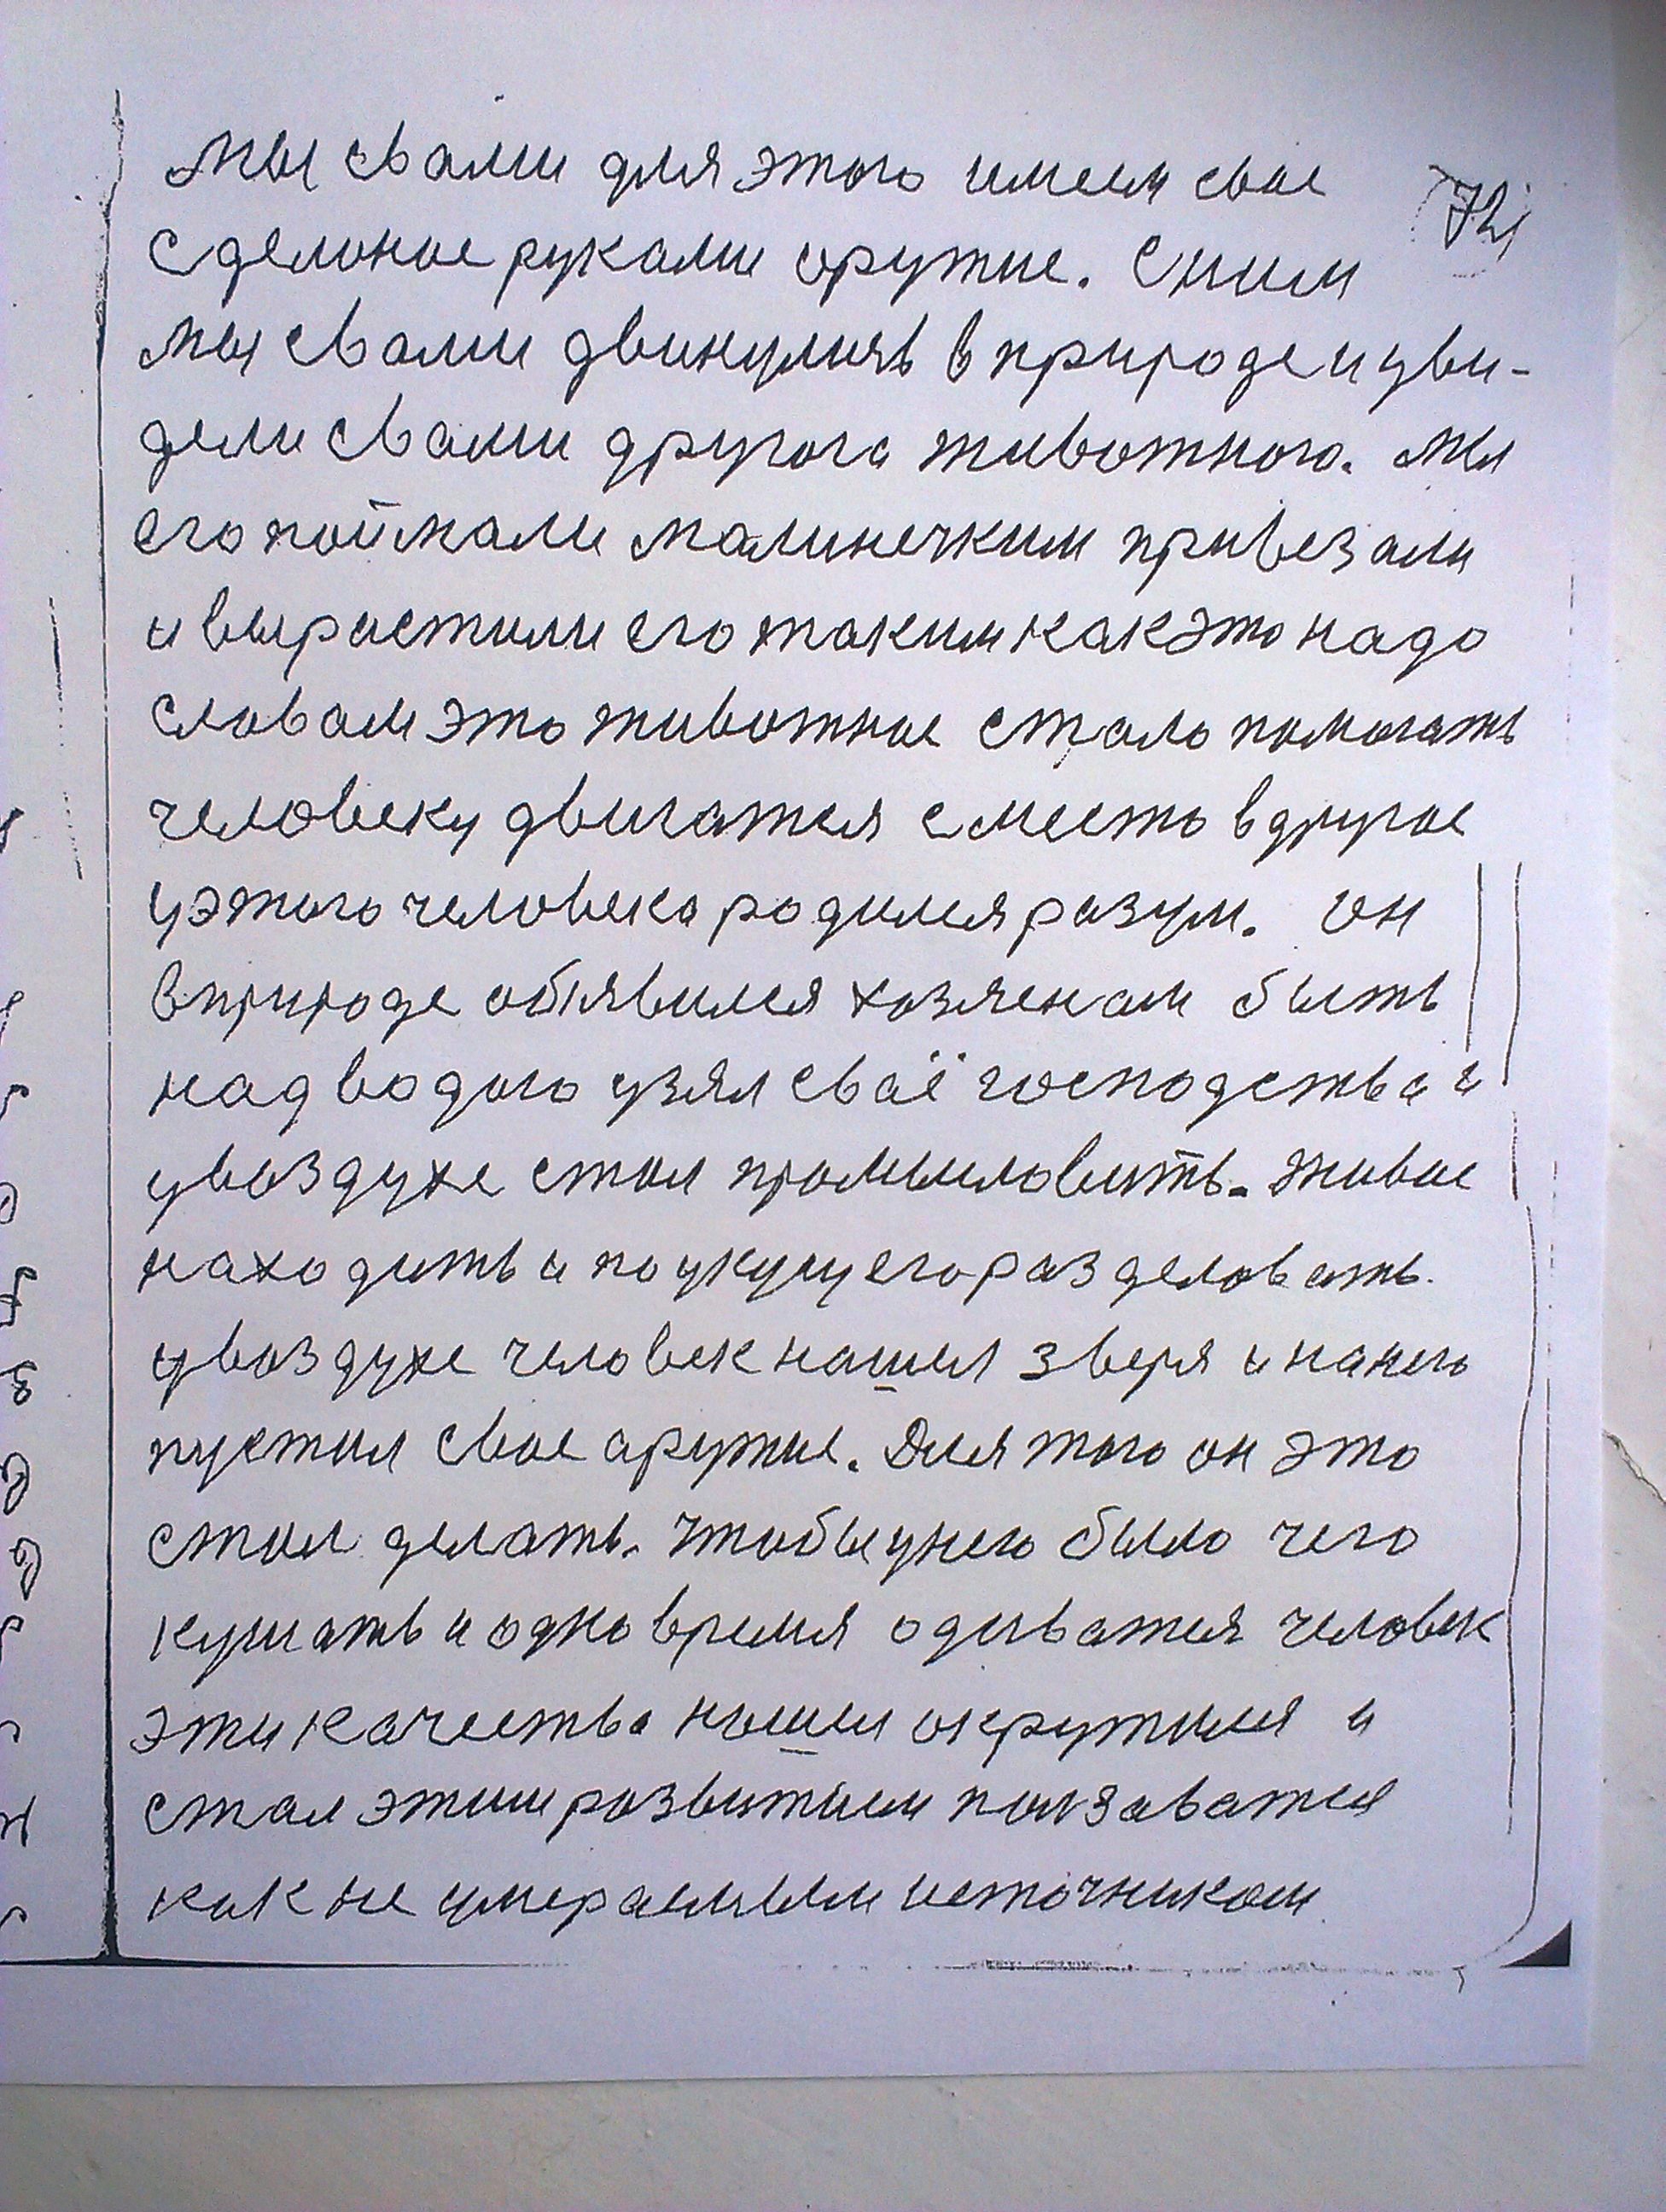 Мы свами для этого имеем свое
72
сделоное руками оружие. Сним
мы свами двинулись в природе и уви-
дели свами другога животного. Мы
его поймали малинечким привезали
и вырастили его таким как это надо
словам это животное стало помогать
человеку двигатся с место в другое
у этого человека родился разум. он
в природе обявился хозяеном быть
над водого узял сваё господства и
увоздухе стал промыловить. живое
находить и по укусу его разделовать.
увоздухе человек нашел зверя и нанего
пустил свое аружие. Для того он это
стал делать. чтобы унего было чего
кушать и одно время одиватся человек
эти качества нашел окружился и
стал этим развитием ползаватся
как не умераемым источником